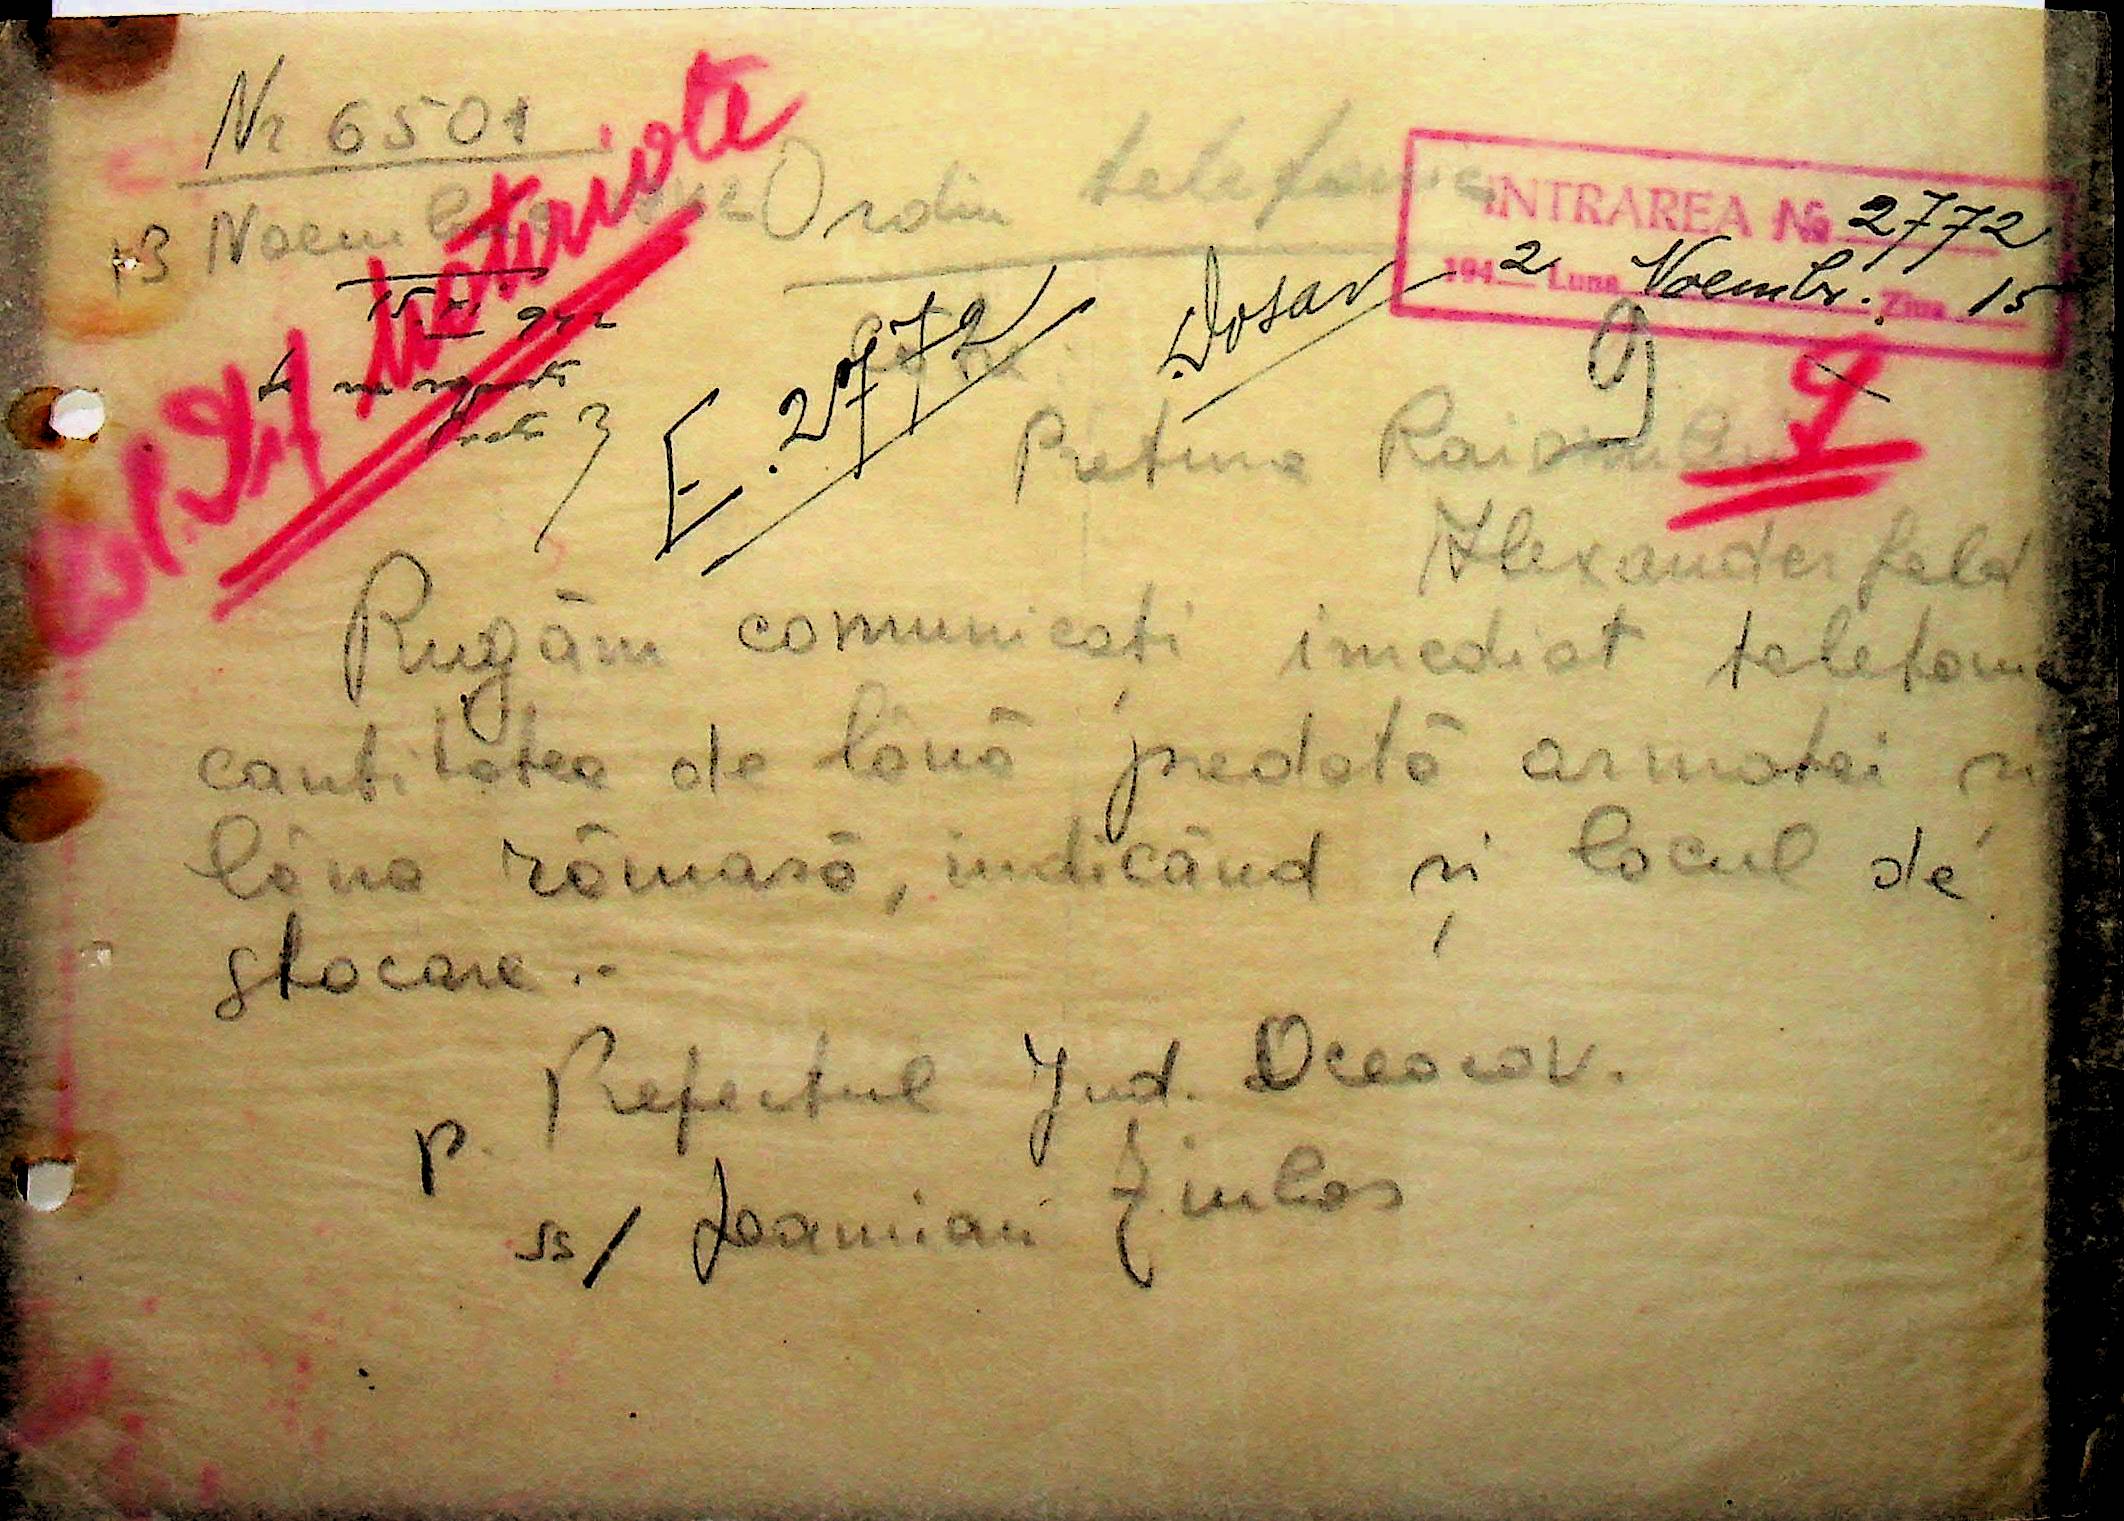 Nr 6501
13 Noembrie 942 Ordin telefonic
INTRAREA № 2772
1942 Luna Noembr. Ziua 15
15.XI.942
Dosar
E. 2772
către
9
9
Pretura Raionului
Alexanderfeld
Rugăm comunicați imediat telefonic
cantitatea de lână predată armatei și
lâna rămasă, indicând și locul de
stocare.-
Prefectul Jud. Oceacov.
p.
ss/ Damian Zimbas